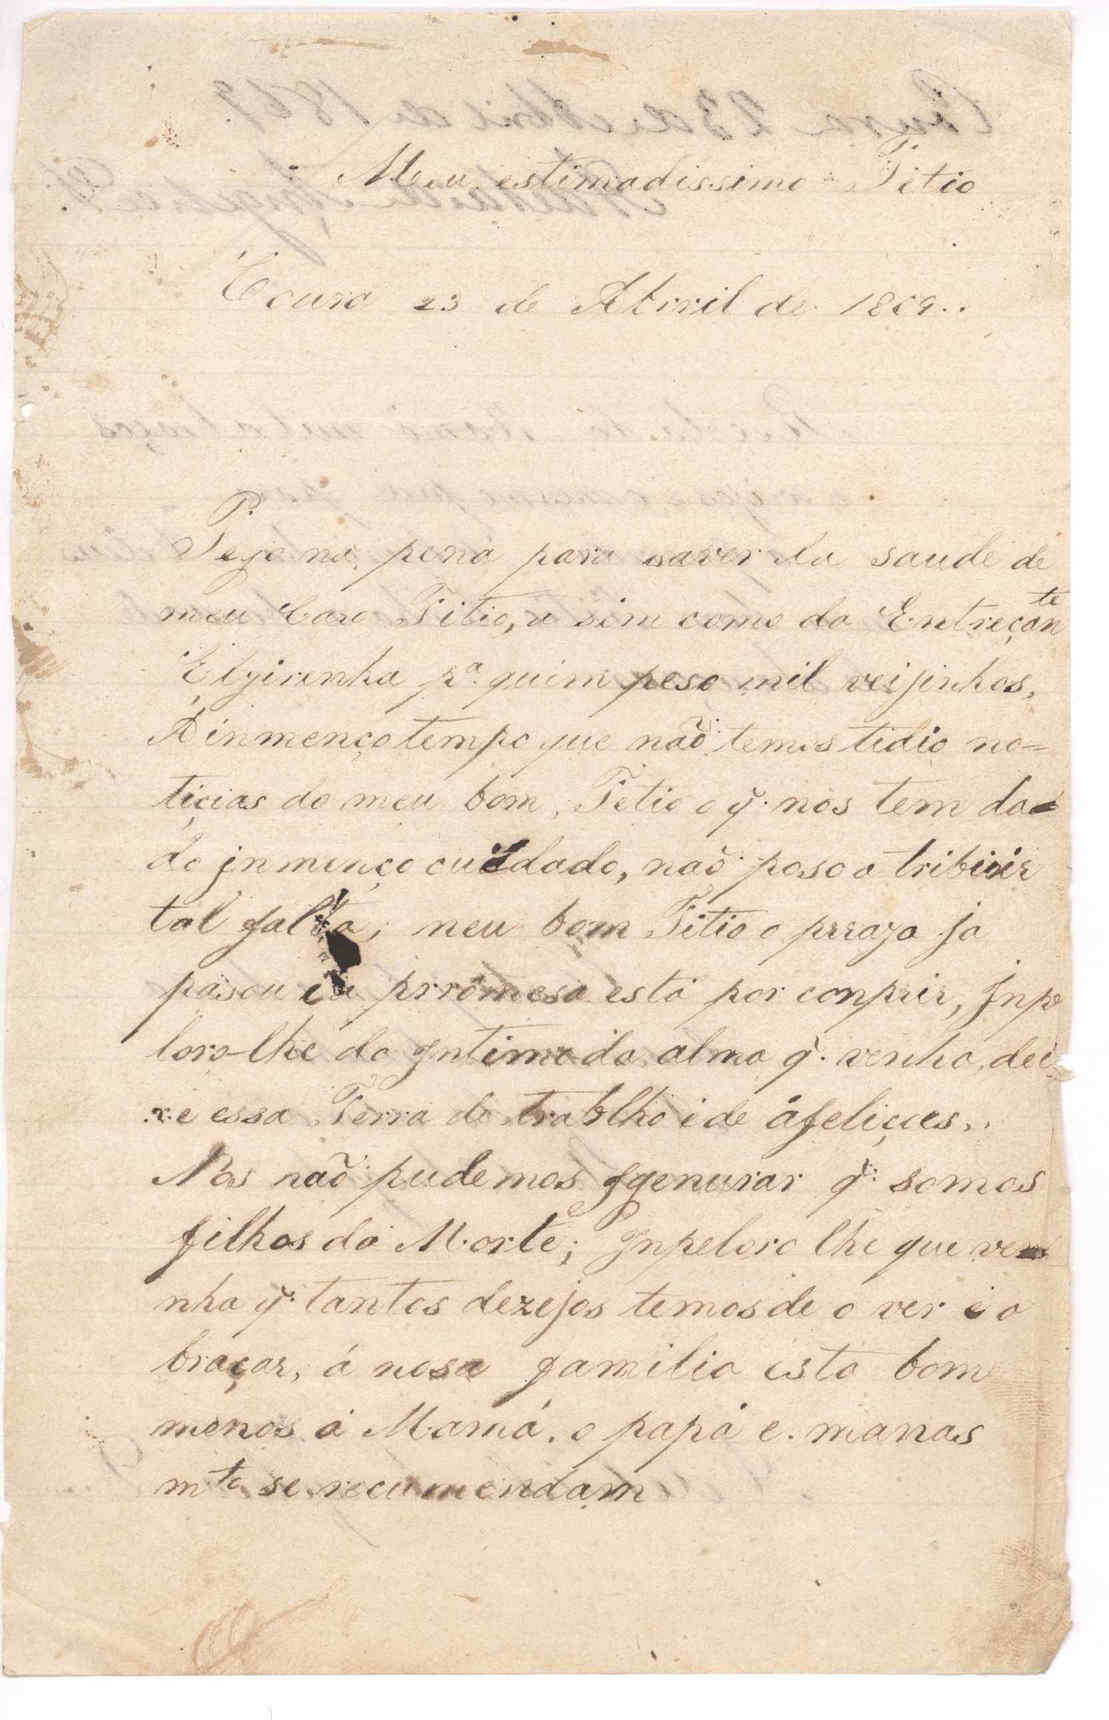 Meu estimadissimo Titio
Coura 23 de Abrril de 1869..
Pego na pena para saver da saude de
meu Caro Titio, a sim como da Entreçante
Elyirinha pª. quim peso mil veijinhos,
A inmenço tempo que não temos tidio no=
tiçias do meu bom, Titio o q̃. nos tem da=
do jnmenço cuidado, naõ poso a tribuir
tal falta; meu bom Titio o prrazo ja
pasou e a prrômesa está por conprir, Jnpe
loro-lhe do Jntimo da alma q̃. venha, dei
xe essa Terra de trablho i de áfeliçues..
Nos naõ pudemos Jgenurar q̃. somos
filhos da Morte; Jnpeloro lhe que ve
nha q̃. tantos dezejos temos de o ver e a
braçar, á nosa familia esta bom
menos á Mamá. o papá e. manas
mto se recumendam